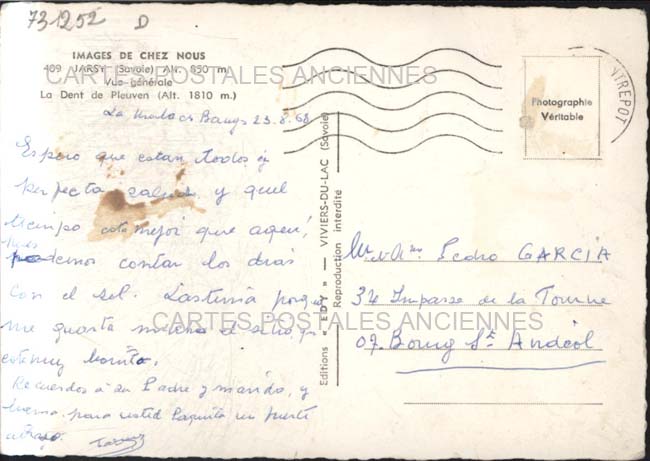 731252 D
IMAGES DE CHEZ NOUS
409 JARSY (Savoie) Alt. 850 m.
Vue générale
La Dent de Pleuven (Alt. 1810 m.)
CARTES POSTALES ANCIENNES
23.8.68
Espero que estan todos en
perfecta salud y que el
tiempo este mejor que aqui,
pues
podemos contar los dias
con el sol. Lastima porque
me gusta mucho el sitio, que
es muy bonito.
Recuerdos à su Padre y marido, y
para usted Paquita un fuerte
abrazo.
Editions « EDY » — VIVIERS-DU-LAC (Savoie)
Reproduction interdite
ENTREPOT
Photographie
Véritable
Mr et Mme Pedro GARCIA
34 Impasse de la Tourne
07. Bourg St Andéol
CARTES POSTALES ANCIENNES